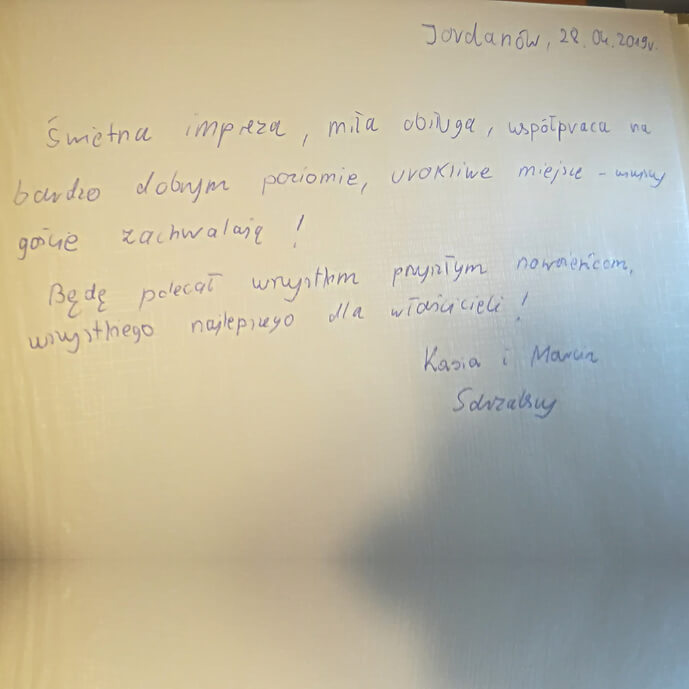 Jordanów, 28.04.2019r.
Świetna impreza, miła obsługa, współpraca na
bardzo dobrym poziomie, urokliwe miejsce - wszyscy
goście zachwalają!
Będę polecał wszystkim przyszłym nowożeńcom,
wszystkiego najlepszego dla właścicieli!
Kasia i Marcin